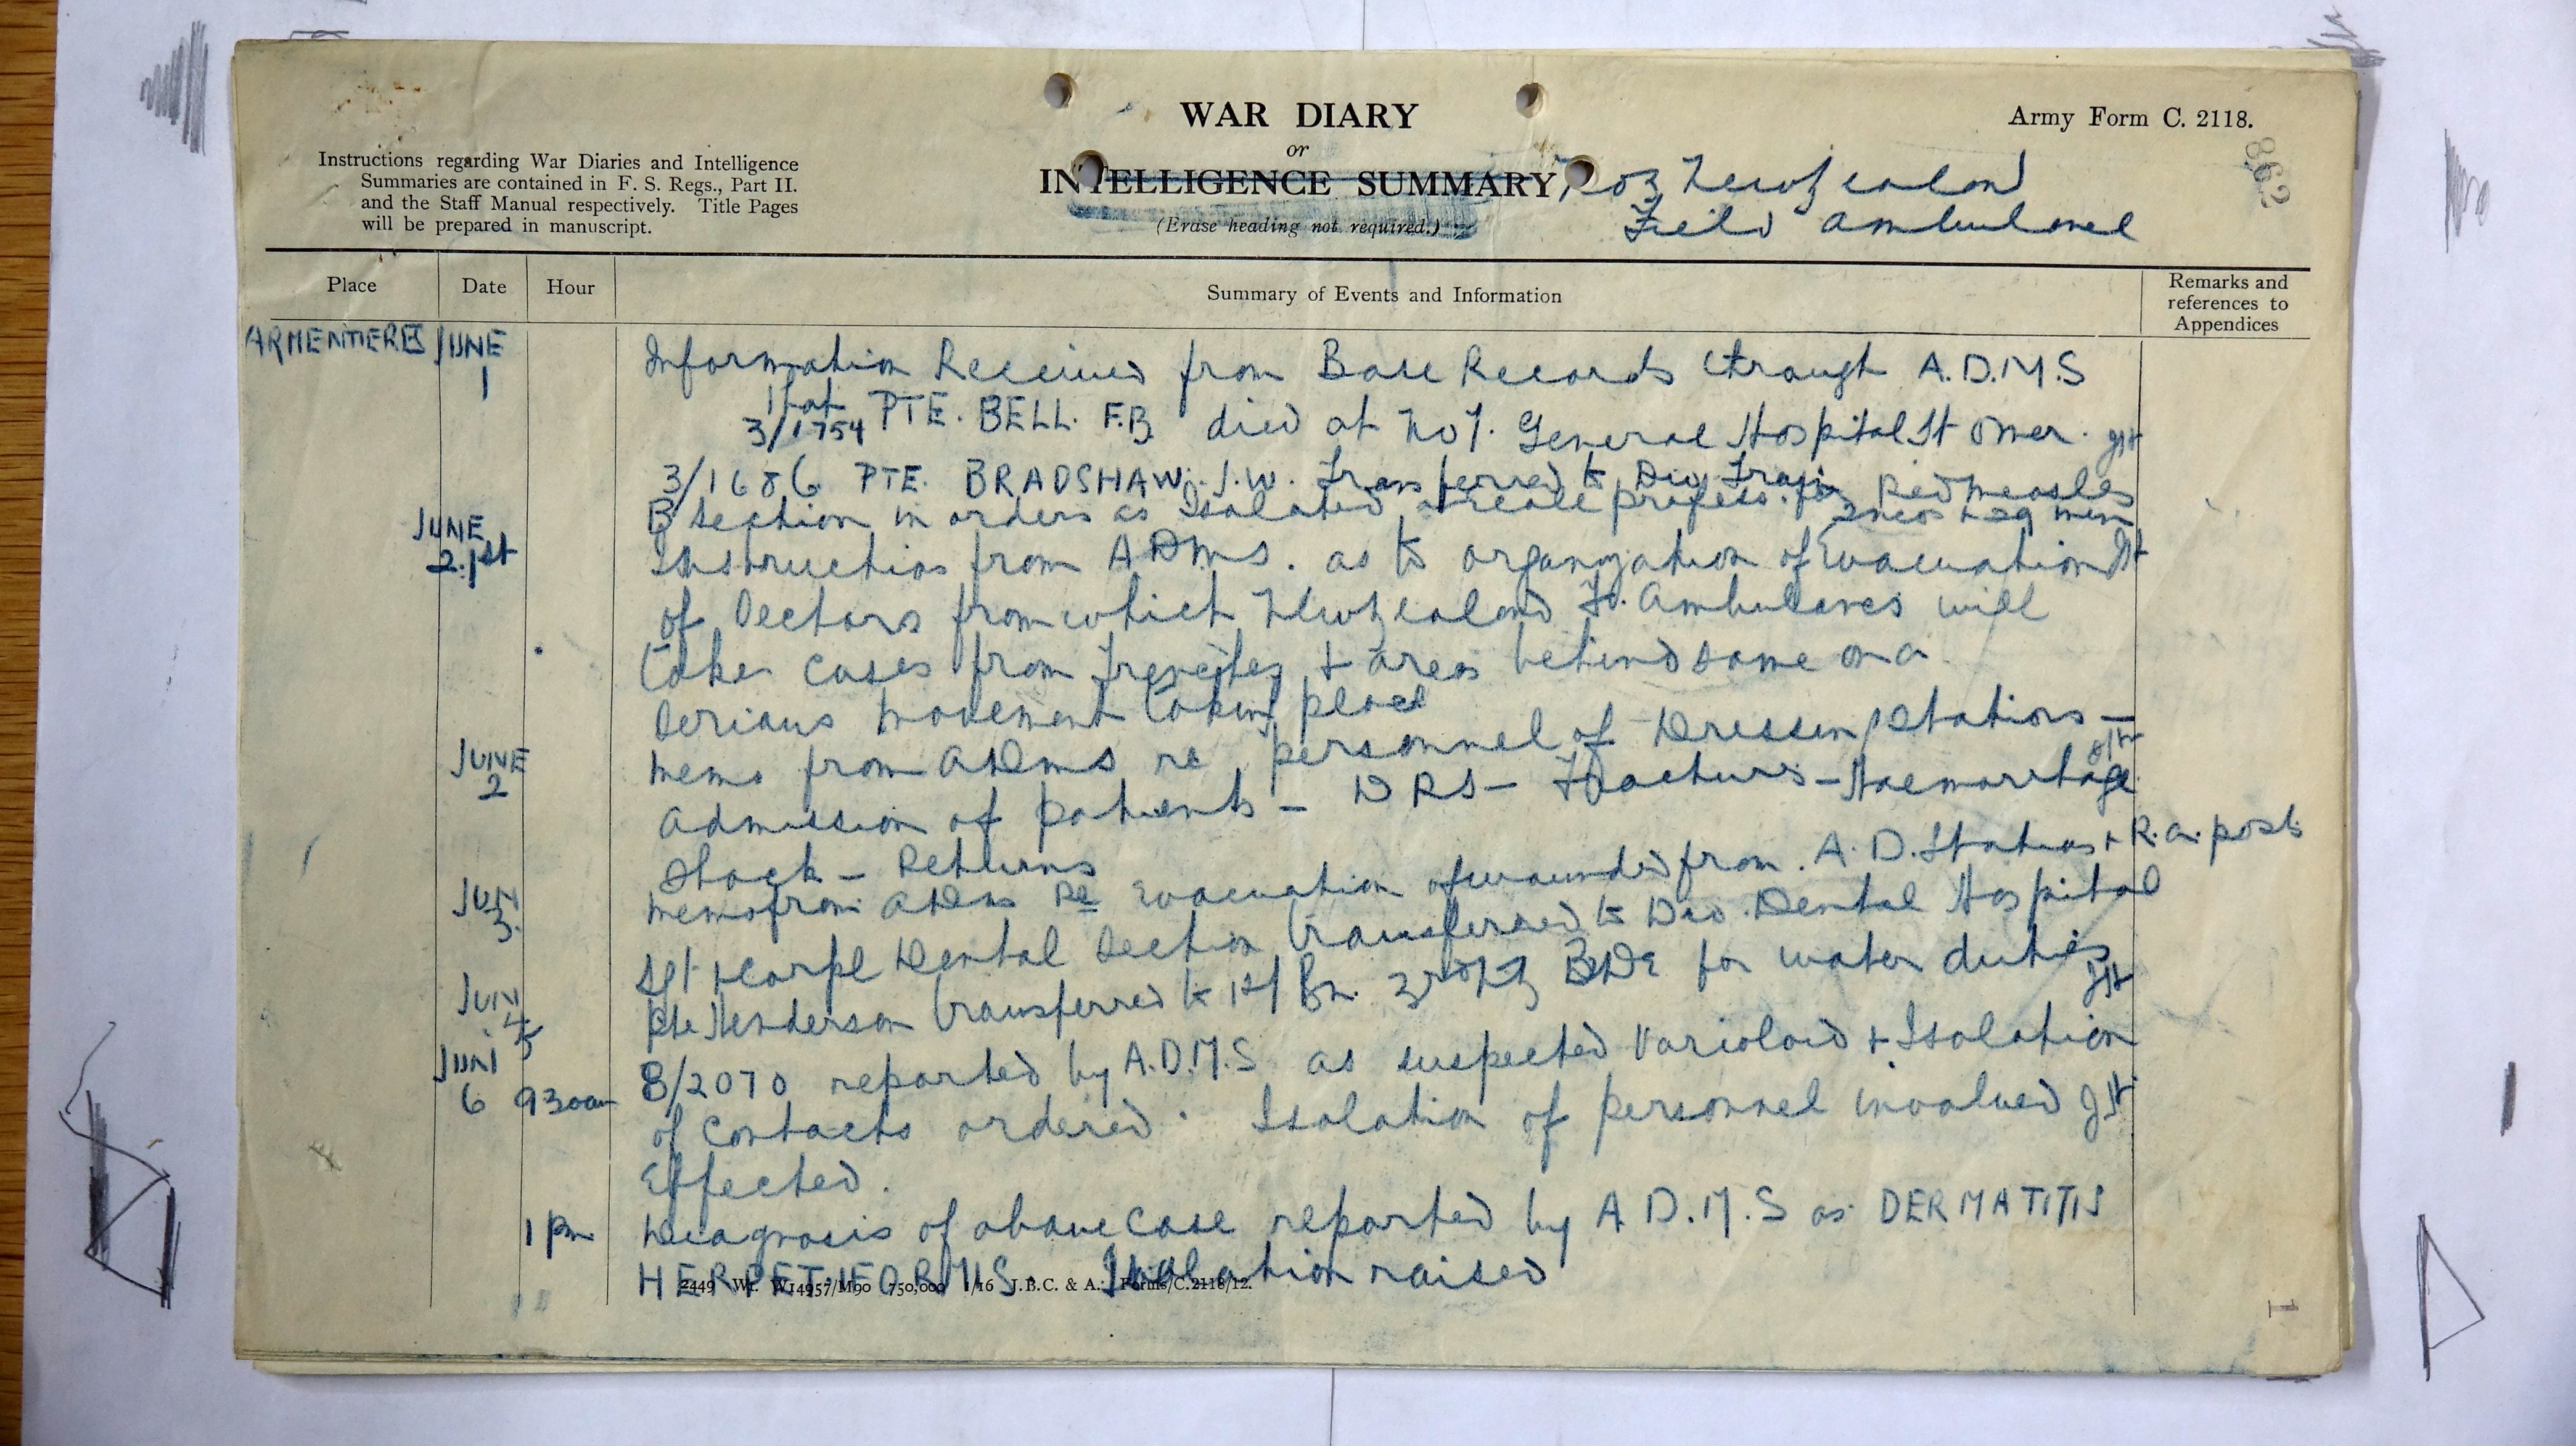 WAR DIARY
or
INTELLIGENCE SUMMARY
(Erase heading not required.)
Army Form C. 2118.
862
Instructions regarding War Diaries and Intelligence
Summaries are contained in F. S. Regs., Part II.
and the Staff Manual respectively. Title Pages
will be prepared in manuscript.
No3 New Zealand
Field Ambulance
Place Date Hour Summary of Events and Information Remarks and references to Appendices
ARMENTIERES JUNE 1 Information Received from Base Records through A.D.M.S
that
3/1754 PTE. BELL. F.B. died at No 7. General Hospital St Omer.
3/1686 PTE. BRADSHAW. J.W. Transferred to Div Train
B Section in orders as Isolated Red measles
men
JUNE 2.1st Instructions from ADMS. as to organization of Evacuation
of Sectors from which New Zealand Fd. Ambulances will
take cases from Trenches & areas behind same on a
serious movement taking place
JUNE 2 Memo from ADMS re personnel of Dressing Stations —
Admission of patients — DRS — Fractures — Haemorrhage
Shock — Returns
JUN 3. Memo from ADMS Re Evacuation of wounded from A.D. Stations & R.A. posts
Sgt & Corpl Dental Section transferred to Div. Dental Hospital
JUN 4 Pte Henderson transferred to 1st Bn. 3rd NZ BDE for water duties
5
JUN 6 930am 8/2070 reported by A.D.M.S as suspected Varioloid & Isolation
of contacts ordered. Isolation of personnel involved
Effected.
1 pm Diagnosis of above case reported by A.D.M.S as DERMATITIS
HERPETIFORMIS. Isolation raised
2449 Wt. W14957/M90 750,000 1/16 J.B.C. & A. Forms/C.2118/12.
1